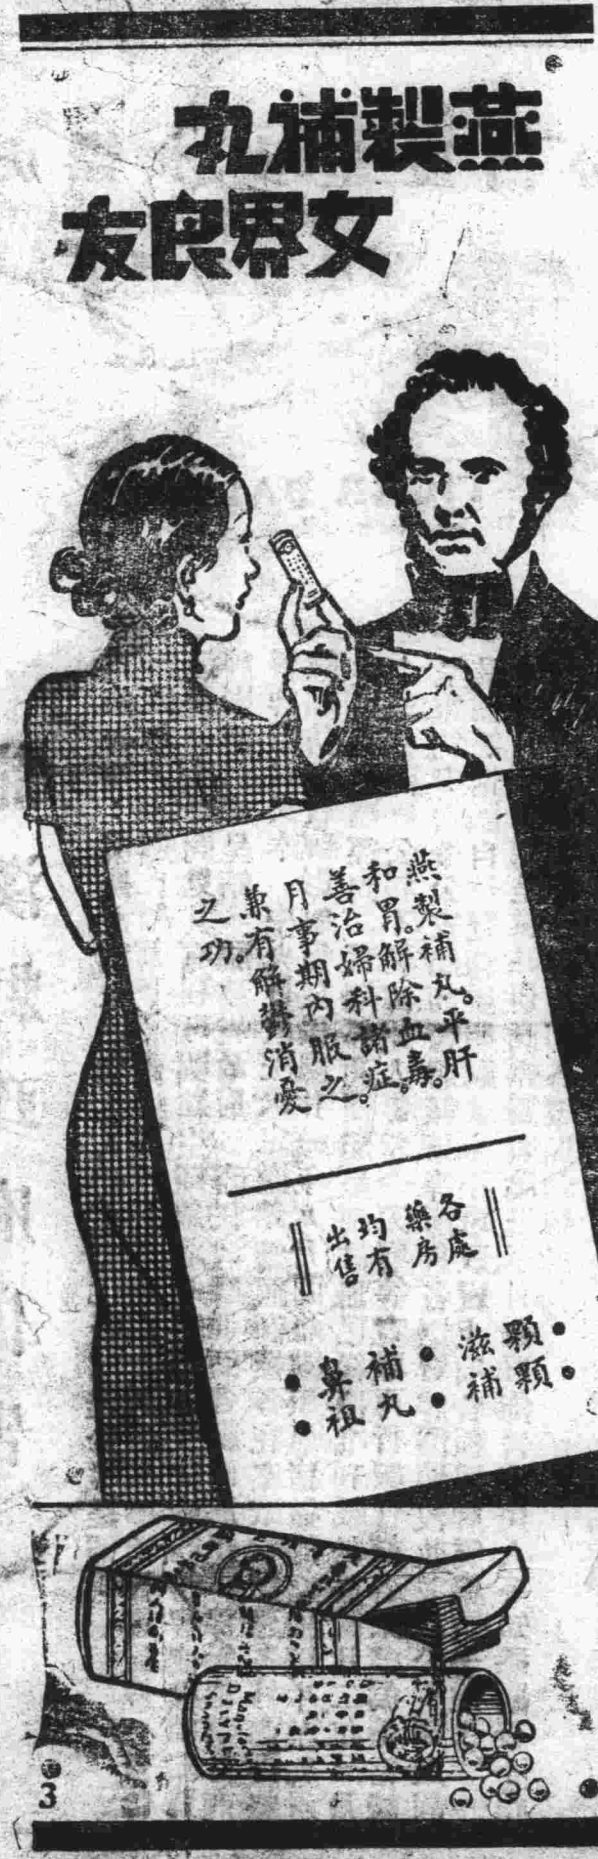 燕製補丸
女界良友
燕製補丸。平肝
和胃。解除血毒。
善治婦科諸症。
月事期內服之。
兼有解鬱消憂
之功。
各處
藥房
均有
出售
顆顆
滋補
補丸
鼻祖
3